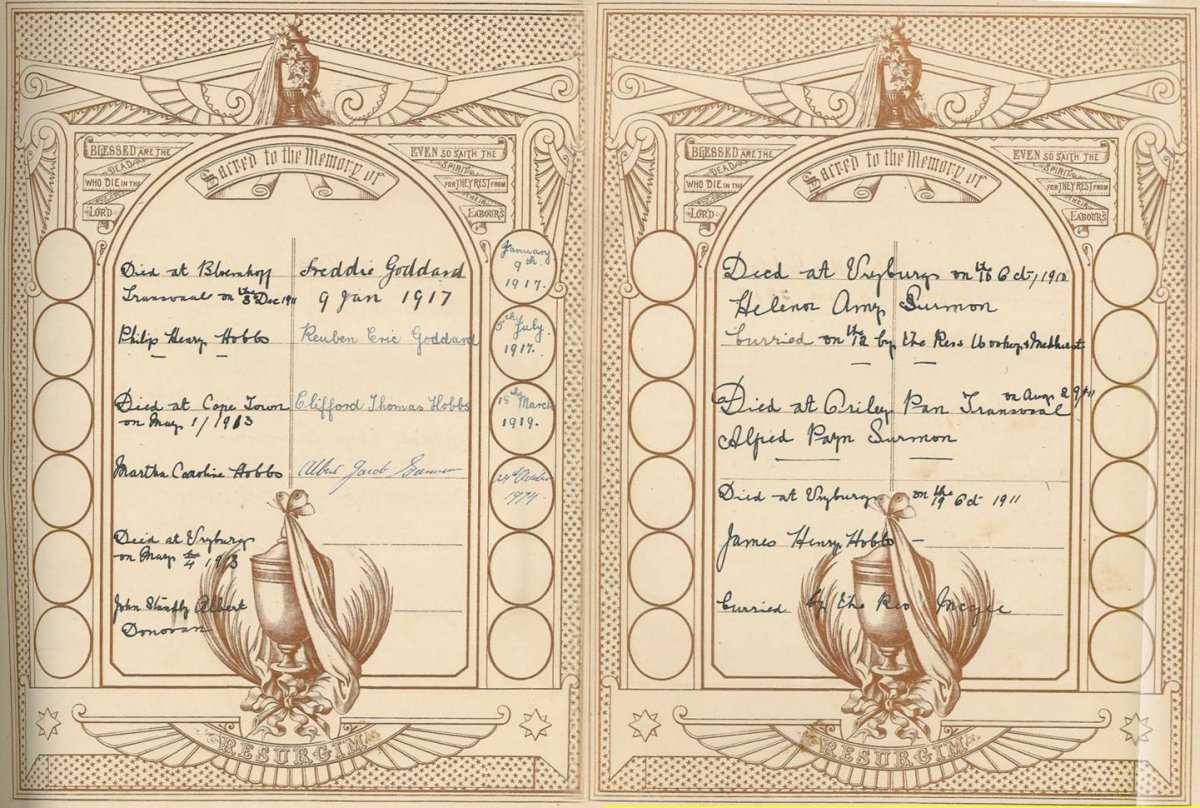 BLESSED ARE THE
DEAD
WHO DIE IN THE
LORD
Sacred to the Memory of
EVEN SO SAITH THE
SPIRIT
FOR THEY REST FROM
THEIR
LABOURS
Died at Bloemhoff
Transvaal on the 3 Dec 1911
Philip Henry Hobbs
Died at Cape Town
on May 1/1913
Martha Caroline Hobbs
Died at Vryburg
on May 4 1913
John Stanfly Albert
Donovan
Freddie Goddard
9 Jan 1917
Reuben Eric Goddard
Clifford Thomas Hobbs
Albert Jacob Surmon
January
9th
1917.
5th July
1917.
18th March
1919.
24th October
1974
RESURGIM
BLESSED ARE THE
DEAD
WHO DIE IN THE
LORD
Sacred to the Memory of
EVEN SO SAITH THE
SPIRIT
FOR THEY REST FROM
THEIR
LABOURS
Died at Vryburg on the 10 Oct, 1910
Helenor Amy Surmon
burried on the 12 by the Revs Wookey & Medhurst
Died at Pan Transvaal on Aug 29/11
Alfred Payn Surmon
Died at Vryburg on the 19 Oct 1911
James Henry Hobbs
burried by the Rev Mcgee
RESURGIM